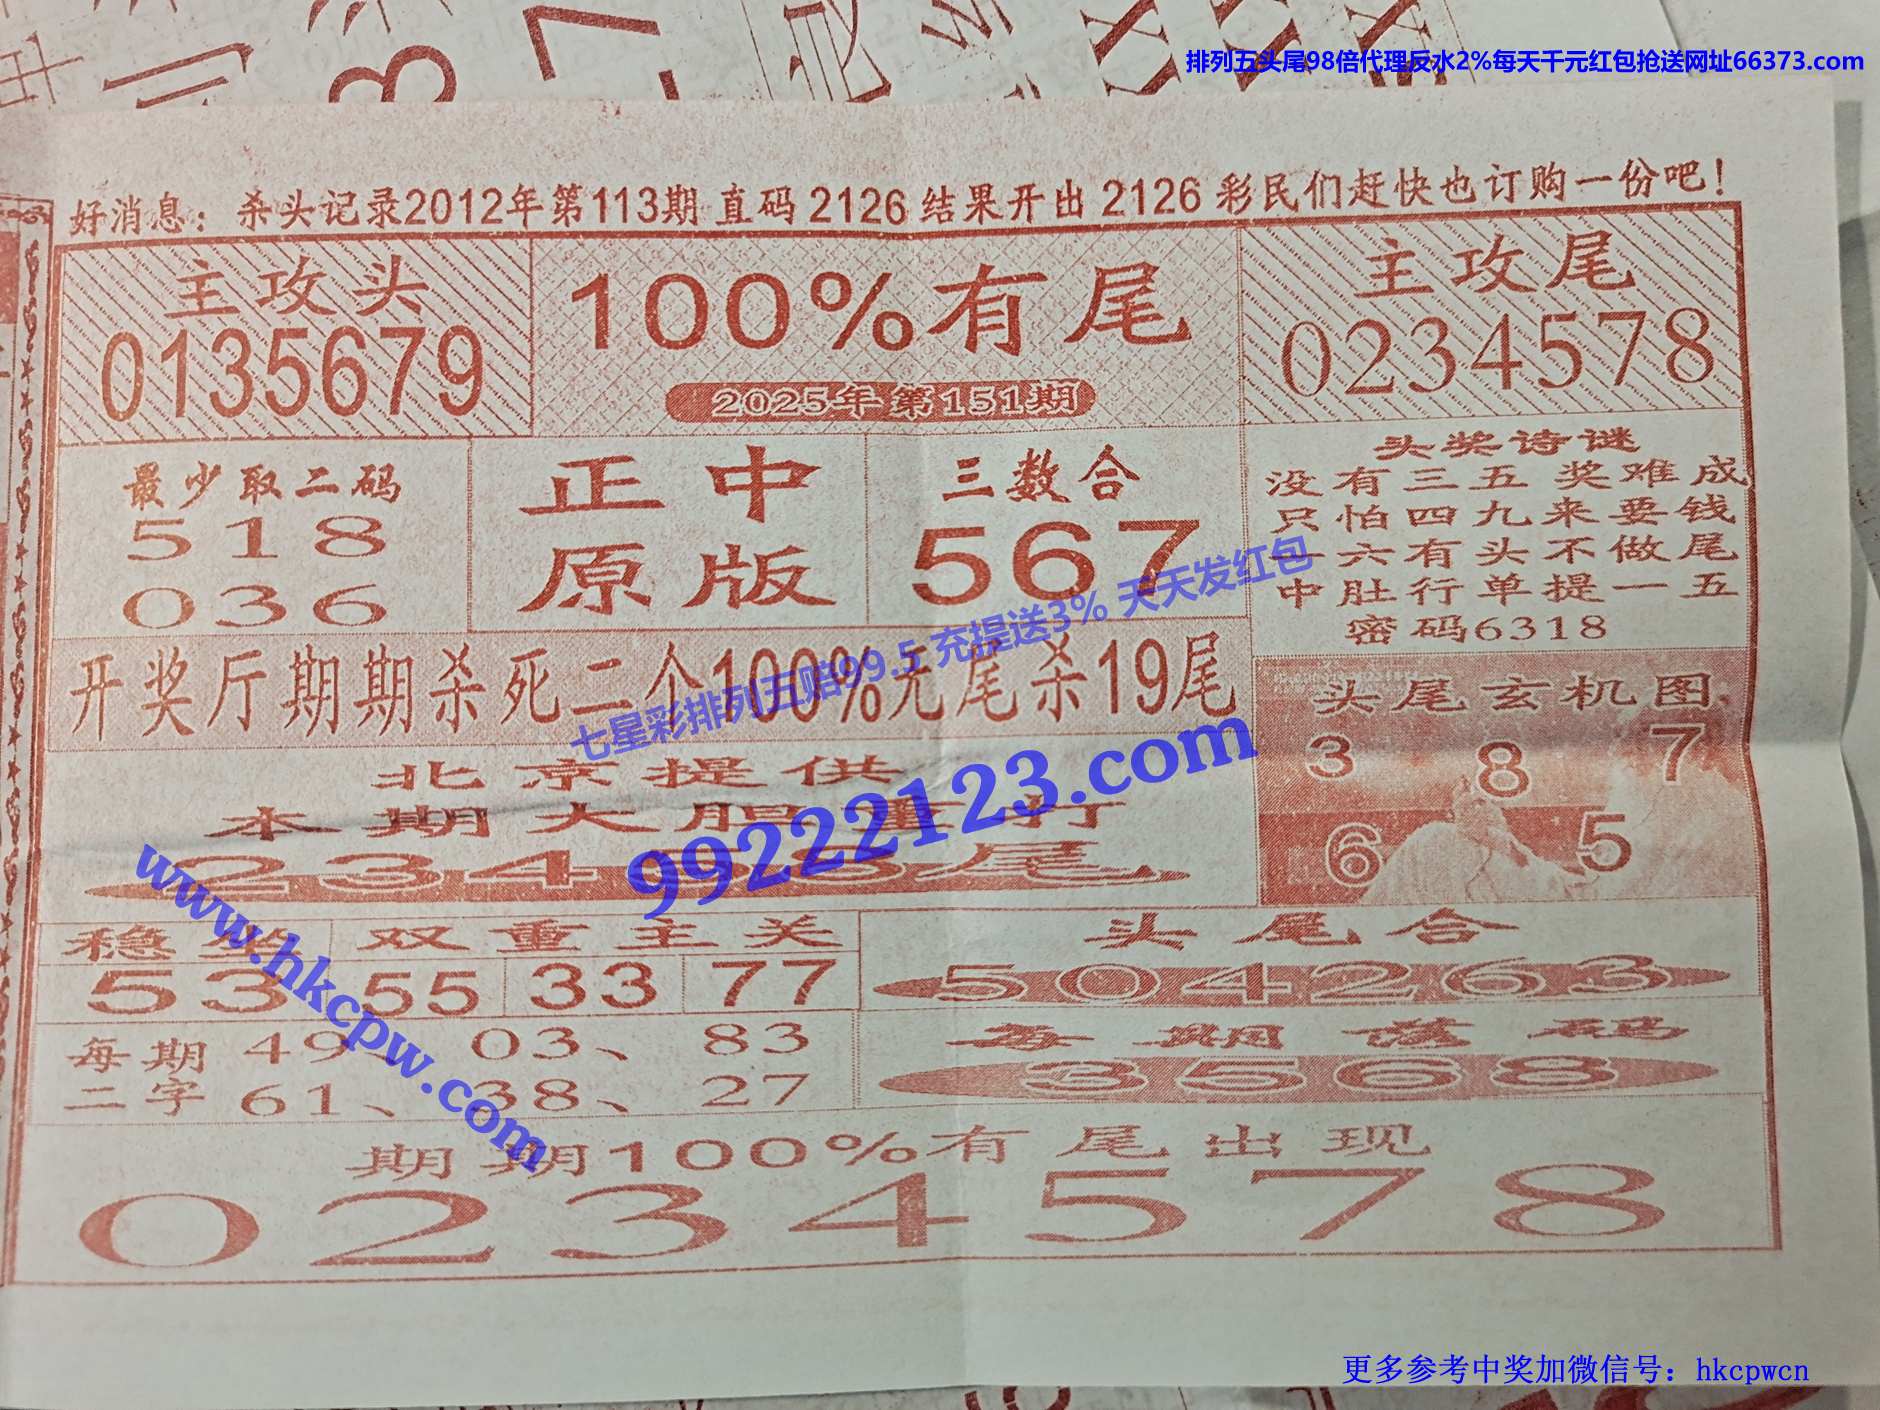 排列五头尾98倍代理反水2%每天千元红包抢送网址66373.com
好消息：杀头记录2012年第113期 直码 2126 结果开出 2126 彩民们赶快也订购一份吧！
主攻头
0135679
100%有尾
2025年第151期
主攻尾
0234578
最少取二码
518
036
正中
原版
三数合
567
头奖诗谜
没有三五奖难成
只怕四九来要钱
一六有头不做尾
中肚行单提一五
密码6318
七星彩排列五赔99.5 充提送3% 天天发红包
开奖厅期期杀死二个100%无尾杀19尾
头尾玄机图
3 8 7
6 5
北京提供
本期大胆重打
234 8尾
99222123.com
www.hkcpw.com
稳
双重主关
53
55
33
77
头尾合
504263
每期
二字
49 03、 83
61、 38、 27
每期落码
3568
期期100%有尾出现
0234578
更多参考中奖加微信号：hkcpwcn